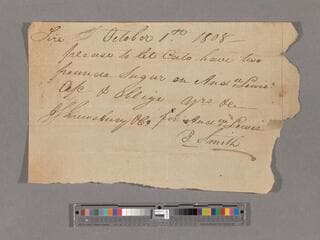 Sire October 1st 1808
please to let Cato have two
pounds Sugar on And.w Lewis
A/c & Oblige yrs &c
Shrewsbury & Co for And.w Lewis
E Smith